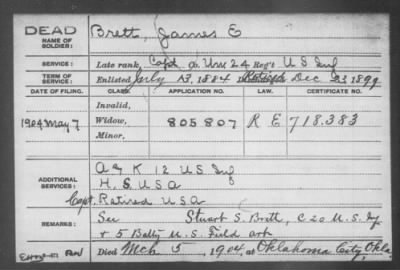 DEAD
NAME OF SOLDIER: Brett, James E
SERVICE: Late rank, Capt Co. Un 24 Reg't U S Inf
TERM OF SERVICE: Enlisted July 13, 1884 Retired Dec 23 1899
DATE OF FILING. CLASS. APPLICATION NO. LAW. CERTIFICATE NO.
Invalid,
1904 May 7 Widow, 805807 R E 718.383
Minor,
ADDITIONAL SERVICES: A & K 12 US Inf
H. S. U S A
Capt. Retired USA
REMARKS: See Stuart S. Brett, C 20 U.S. Inf
+ 5 Batty U.S. Field art
Died Mch 5, 1904, at Oklahoma City, Okla